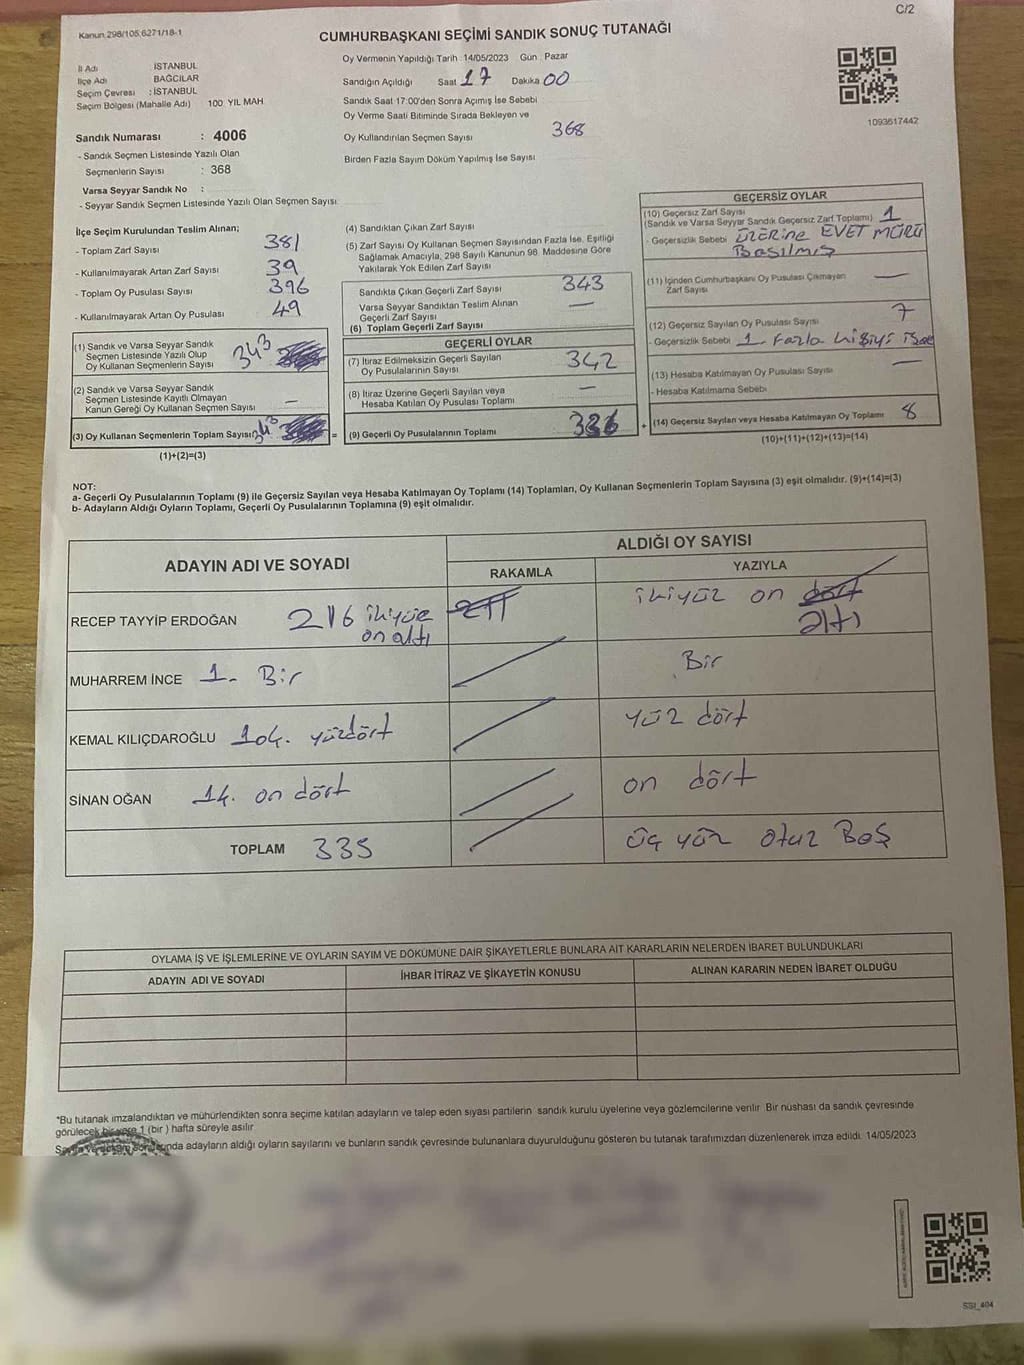 Kanun 298/105 6271/18-1
C/2
CUMHURBAŞKANI SEÇİMİ SANDIK SONUÇ TUTANAĞI
İl Adı İSTANBUL
İlçe Adı BAĞCILAR
Seçim Çevresi : İSTANBUL
Seçim Bölgesi (Mahalle Adı) 100. YIL MAH
Sandık Numarası : 4006
- Sandık Seçmen Listesinde Yazılı Olan
Seçmenlerin Sayısı : 368
Varsa Seyyar Sandık No :
- Seyyar Sandık Seçmen Listesinde Yazılı Olan Seçmen Sayısı
Oy Vermenin Yapıldığı Tarih 14/05/2023 Gün Pazar
Sandığın Açıldığı Saat 17 Dakika 00
Sandık Saat 17:00'den Sonra Açımış İse Sebebi
Oy Verme Saati Bitiminde Sırada Bekleyen ve
Oy Kullandırılan Seçmen Sayısı 368
Birden Fazla Sayım Döküm Yapılmış İse Sayısı
1093617442
İlçe Seçim Kurulundan Teslim Alınan;
- Toplam Zarf Sayısı 381
- Kullanılmayarak Artan Zarf Sayısı 39
- Toplam Oy Pusulası Sayısı 396
- Kullanılmayarak Artan Oy Pusulası 49
(1) Sandık ve Varsa Seyyar Sandık
Seçmen Listesinde Yazılı Olup
Oy Kullanan Seçmenlerin Sayısı 343
(2) Sandık ve Varsa Seyyar Sandık
Seçmen Listesinde Kayıtlı Olmayan
Kanun Gereği Oy Kullanan Seçmen Sayısı —
(3) Oy Kullanan Seçmenlerin Toplam Sayısı 343 =
(1)+(2)=(3)
(4) Sandıktan Çıkan Zarf Sayısı
(5) Zarf Sayısı Oy Kullanan Seçmen Sayısından Fazla İse, Eşitliği
Sağlamak Amacıyla, 298 Sayılı Kanunun 98. Maddesine Göre
Yakılarak Yok Edilen Zarf Sayısı
Sandıkta Çıkan Geçerli Zarf Sayısı 343
Varsa Seyyar Sandıktan Teslim Alınan
Geçerli Zarf Sayısı —
(6) Toplam Geçerli Zarf Sayısı
GEÇERLİ OYLAR
(7) İtiraz Edilmeksizin Geçerli Sayılan
Oy Pusulalarının Sayısı 342
(8) İtiraz Üzerine Geçerli Sayılan veya
Hesaba Katılan Oy Pusulası Toplamı —
(9) Geçerli Oy Pusulalarının Toplamı +
GEÇERSİZ OYLAR
(10) Geçersiz Zarf Sayısı
(Sandık ve Varsa Seyyar Sandık Geçersiz Zarf Toplamı) 1
- Geçersizlik Sebebi ÜZERİNE EVET MÜRÜ
BASILMIŞ
(11) İçinden Cumhurbaşkanı Oy Pusulası Çıkmayan
Zarf Sayısı —
(12) Geçersiz Sayılan Oy Pusulası Sayısı 7
- Geçersizlik Sebebi 1. Fazla kişiyi
(13) Hesaba Katılmayan Oy Pusulası Sayısı —
- Hesaba Katılmama Sebebi
(14) Geçersiz Sayılan veya Hesaba Katılmayan Oy Toplamı 8
(10)+(11)+(12)+(13)=(14)
NOT:
a- Geçerli Oy Pusulalarının Toplamı (9) ile Geçersiz Sayılan veya Hesaba Katılmayan Oy Toplamı (14) Toplamları, Oy Kullanan Seçmenlerin Toplam Sayısına (3) eşit olmalıdır. (9)+(14)=(3)
b- Adayların Aldığı Oyların Toplamı, Geçerli Oy Pusulalarının Toplamına (9) eşit olmalıdır.
ADAYIN ADI VE SOYADI
ALDIĞI OY SAYISI
RAKAMLA YAZIYLA
RECEP TAYYİP ERDOĞAN 216 ikiyüz on altı 211 ikiyüz on dört altı
MUHARREM İNCE 1. Bir Bir
KEMAL KILIÇDAROĞLU 104. yüzdört yüz dört
SİNAN OĞAN 14. on dört on dört
TOPLAM 335 üç yüz otuz Beş
OYLAMA İŞ VE İŞLEMLERİNE VE OYLARIN SAYIM VE DÖKÜMÜNE DAİR ŞİKAYETLERLE BUNLARA AİT KARARLARIN NELERDEN İBARET BULUNDUKLARI
ADAYIN ADI VE SOYADI İHBAR İTİRAZ VE ŞİKAYETİN KONUSU ALINAN KARARIN NEDEN İBARET OLDUĞU
*Bu tutanak imzalandıktan ve mühürlendikten sonra seçime katılan adayların ve talep eden siyasi partilerin sandık kurulu üyelerine veya gözlemcilerine verilir Bir nushası da sandık çevresinde
görülecek bir yere 1 (bir) hafta süreyle asılır
adayların aldığı oyların sayılarını ve bunların sandık çevresinde bulunanlara duyurulduğunu gösteren bu tutanak tarafımızdan düzenlenerek imza edildi. 14/05/2023
SSI_404